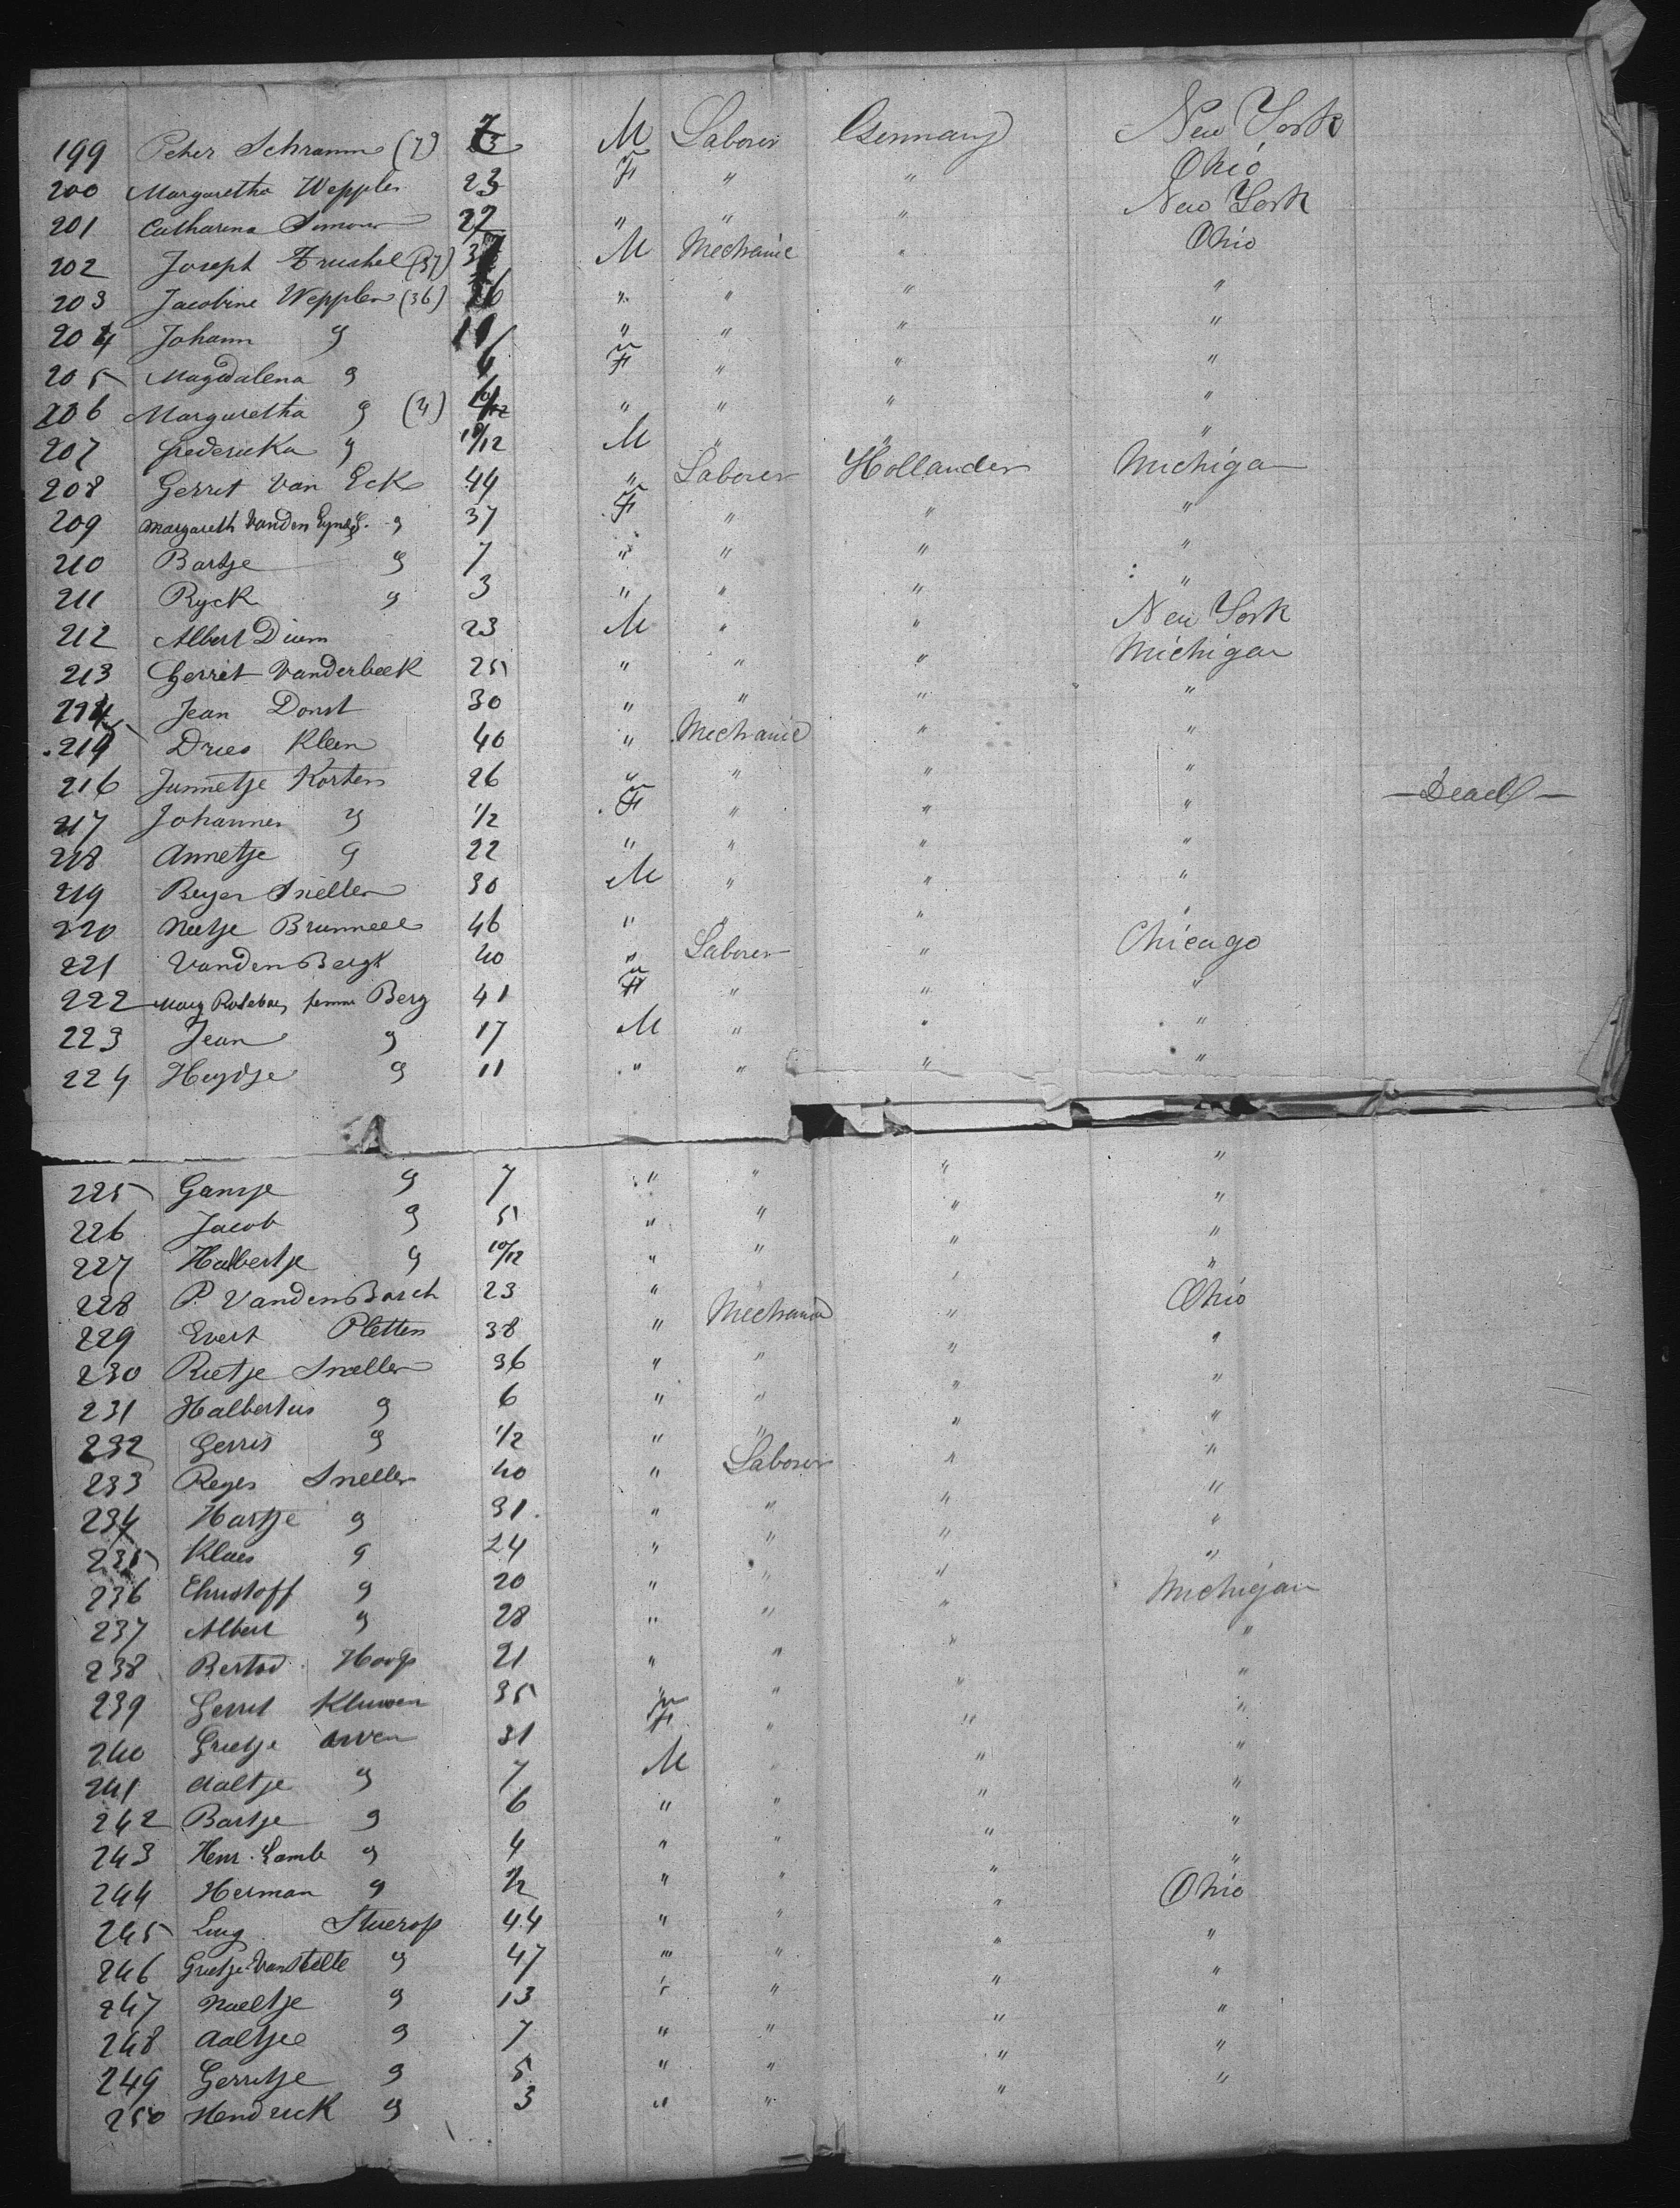 199 Peter Schramm (7) 7 M Laborer Germany New York
200 Margaretha Weppler 23 F " " Ohio
201 Catharina Simon 22 " " " New York
202 Joseph Trushel (37) 37 M Mechanic " Ohio
203 Jacobine Wepplen (36) 36 " " " "
204 Johann " " " " "
205 Magdalena " 6 F " " "
206 Margaretha " (4) " " " "
207 Frederika " 10/12 M " " "
208 Gerrit Van Eck 44 " Laborer Hollander Michigan
209 Margareth Vanden 37 F " " "
210 Bartje " 7 " " " "
211 Ryck " 3 " " " "
212 Albert Dium 23 M " " New York
213 Gerrit Vanderbeek 25 " " " Michigan
214 Jean Donst 30 " " " "
215 Dries Kleen 40 " Mechanic " "
216 Junnetje Korten 26 " " " "
217 Johannes " 1/2 F " " " — Dead —
218 Annetje " 22 " " " "
219 Beyer Sneller 30 M " " "
220 Neetje 46 " " " "
221 VandenBergh 40 " Laborer " Chicago
222 Mary Berg 41 F " " "
223 Jean " 17 M " " "
224 Heydje " 11 " " " "
225 Gansje " 7 " " " "
226 Jacob " 5 " " " "
227 Halbertje " 10/12 " " " "
228 P. VandenBosch 23 " " " "
229 Evert Pletten 38 " Mechanic " Ohio
230 Rietje Sneller 36 " " " "
231 Halbertus " 6 " " " "
232 Gerris " 1/2 " " " "
233 Reyes Sneller 40 " Laborer " "
234 Hartje " 31 " " " "
235 Klaes " 24 " " " "
236 Christoff " 20 " " " "
237 Albert " 28 " " " Michigan
238 Bertod Hoop 21 " " " "
239 Gerrit Kluwen 35 " " " "
240 Grietje Arven 31 F " " "
241 Aaltje " 7 M " " "
242 Bartje " 6 " " " "
243 Henr. Lamb " 4 " " " "
244 Herman " 1/2 " " " "
245 Luig Stuerop 44 " " " Ohio
246 Grietje Van Stelte " 47 " " " "
247 Naeltje " 13 " " " "
248 Aaltje " 7 " " " "
249 Gerritje " 5 " " " "
250 Hendrick " 3 " " " "